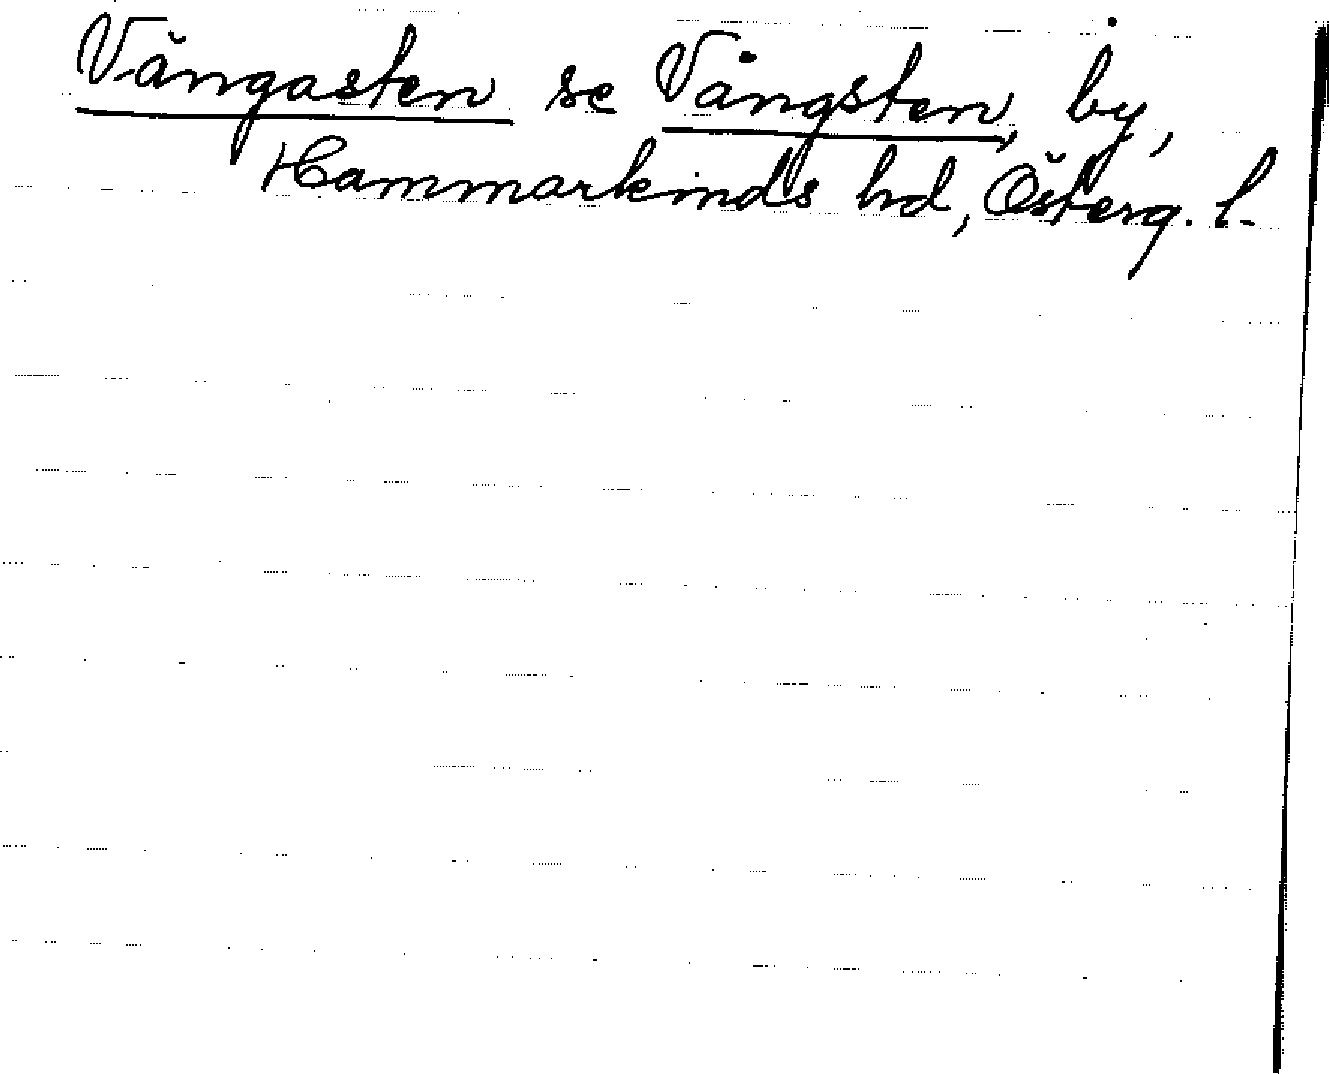 Vängasten se Vångsten, by,
Hammarkinds hd, Österg. l.